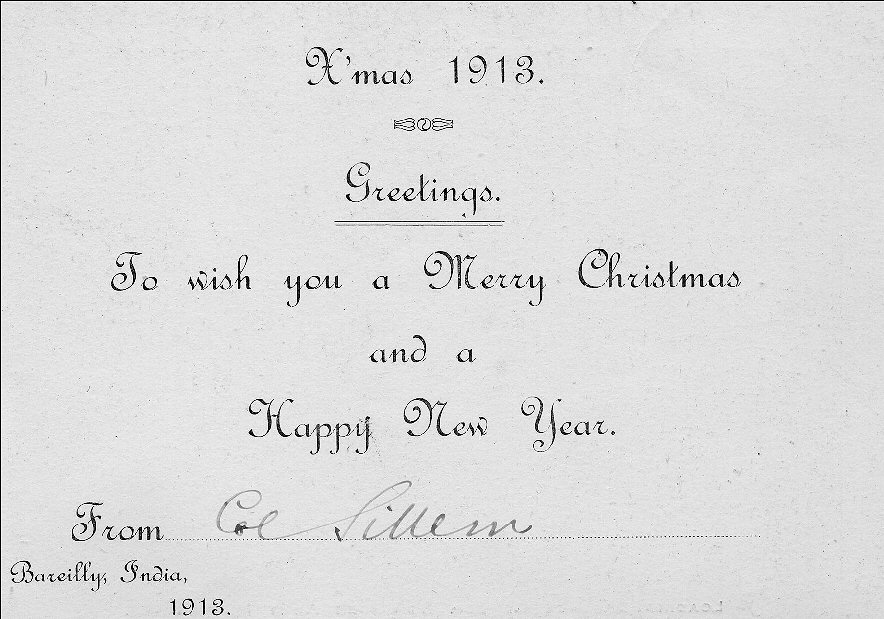 X'mas 1913.
Greetings.
To wish you a Merry Christmas
and a
Happy New Year.
From Col Sillem
Bareilly, India,
1913.